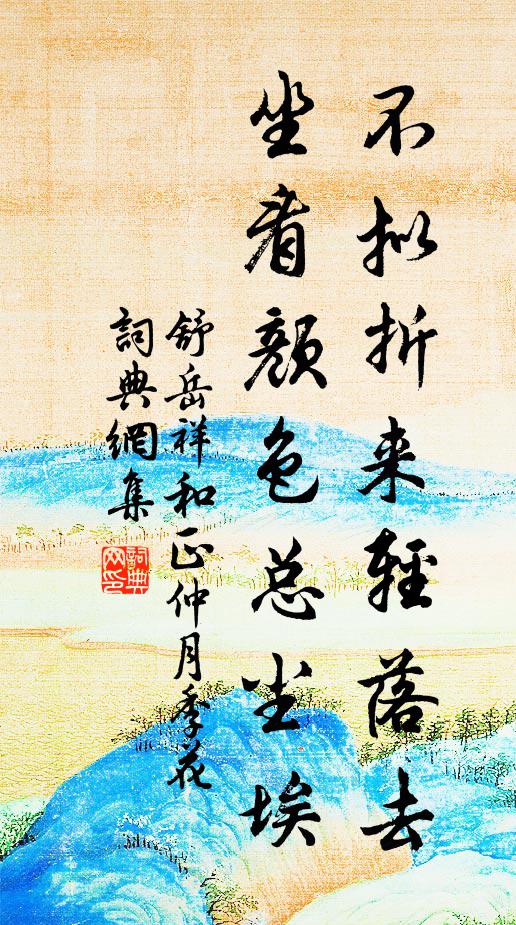 不拟折来輕落去
坐看颜色总尘埃
舒岳祥和正仲月季花
詞典網集
詞典网印